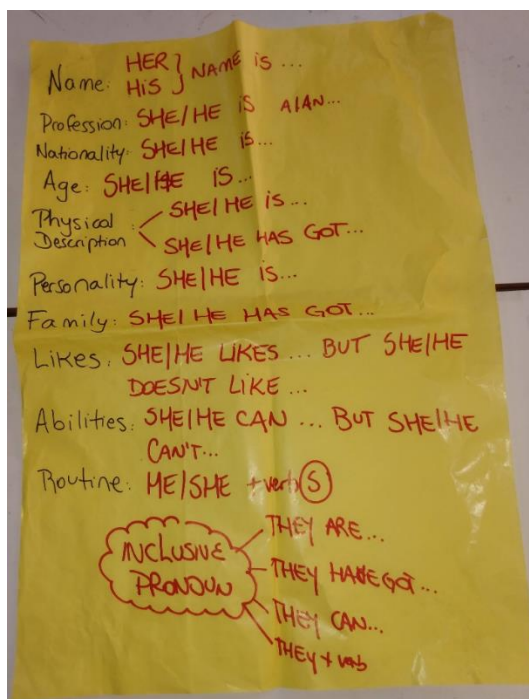 Name: HER } NAME IS ...
HIS
Profession: SHE/HE IS A/AN...
Nationality: SHE/HE IS...
Age: SHE/HE IS...
Physical Description: SHE/HE IS...
SHE/HE HAS GOT...
Personality: SHE/HE IS...
Family: SHE/HE HAS GOT...
Likes: SHE/HE LIKES ... BUT SHE/HE
DOESN'T LIKE ...
Abilities: SHE/HE CAN ... BUT SHE/HE
CAN'T...
Routine: HE/SHE + verb S
INCLUSIVE PRONOUN
THEY ARE...
THEY HAVE GOT...
THEY CAN...
THEY + verb